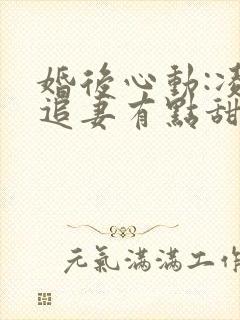 婚後心動:凌
追妻有點甜
元氣滿滿工作